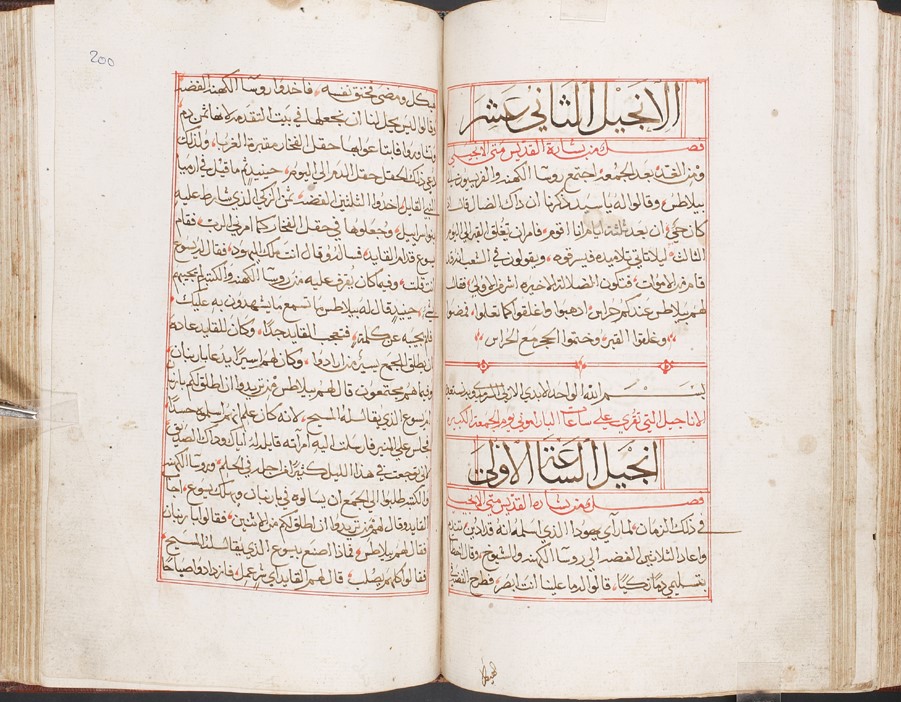 الانجيل الثاني عشر
فصل من بشارة القديس متي الانجيلي
ومن الغد بعد الجمعة اجتمع روسا الكهنه والفريسيون الي
بيلاطس وقالوا له ياسيد ذكرنا ان ذاك الضال قال اذ
كان حي ان بعد ثلثة ايام انا اقوم فامر ان يغلق القبر الي اليوم
الثالث ليلا تاتي تلاميذه فيسرقوه ويقولون في الشعب انه قد
قام من الاموات فتكون الضلاله الاخيره اشر من الاولي فقال
لهم بيلاطس عندكم حراس اذهبوا واغلقوا كما تعلموا فمضوا
وغلقوا القبر وختموا الحجر مع الحراس
بسم الله الواحد الابدي الازلي السرمدي
الاناجيل التي تقري علي ساعات الباراموني يوم الجمعة الكبيره
انجيل الساعة الاولى
فصل من بشاره القديس متي الانجيلي
في ذلك الزمان لما راي يهودا الذي اسلمه انه قد ادين تندم
واعاد الثلاثين الفضه الي روسا الكهنه والشيوخ وقال اخطات
بتسليمي دمًا زكيًا قالوا له ما علينا انت ابصر فطرح الفضه
200
الهيكل ومضي فخنق نفسه فاخذوا روسا الكهنه الفضه
وقالوا ليس يحل لنا ان نجعلها في بيت التقدمه لانها ثمن دم
وتشاوروا فابتاعوا بها حقل الفخار مقبرة الغربا ولذلك
دعي ذلك الحقل حقل الدم الي اليوم حينيذ تم ماقيل في ارميا
النبي القايل اخذوا الثلثين الفضه ثمن الزكي الذي شارط عليه
بنو اسراييل وجعلوها في حقل الفخار كما امرني الرب فقام
يسوع قدام القايد فساله وقال انت ملك اليهود فقال له يسوع
انت قلت وفيما كان يقرف عليه من روسا الكهنه والكتبه لم يجبهم
بشي حينيذ قال له بيلاطس ما تسمع ما يشهدون به عليك
فلم يجيبه عن كلمة فتعجب القايد جدًا وكان للقايد عادة
ان يطلق للجمع اسيرًا من ارادوا وكان لهم اسيرًا يدعا باربنان
وفيما هم مجتمعون قال لهم بيلاطس من تريدوا ان اطلق لكم باربنان
ام يسوع الذي يقال له المسيح لانه كان علم انهم اسلموه حسدًا
فجلس علي المنبر فارسلت اليه امراته قايله له اياك وذاك الصديق
لاني توجعت في هذا الليل كثيرًا من اجله في الحلم وروسا الكهنه
والكتبه طلبوا الي الجمع ان يسالوه في باربنان ويهلك يسوع اجاب
القايد وقال لهم من تريدوا ان اطلق لكم من الاثنين فقالوا باربنان
فقال لهم بيلاطس فماذا اصنع بيسوع الذي يقال له المسيح
فقالوا كلهم يصلب قال لهم القايد اي شر عمل فازدادوا صياحًا